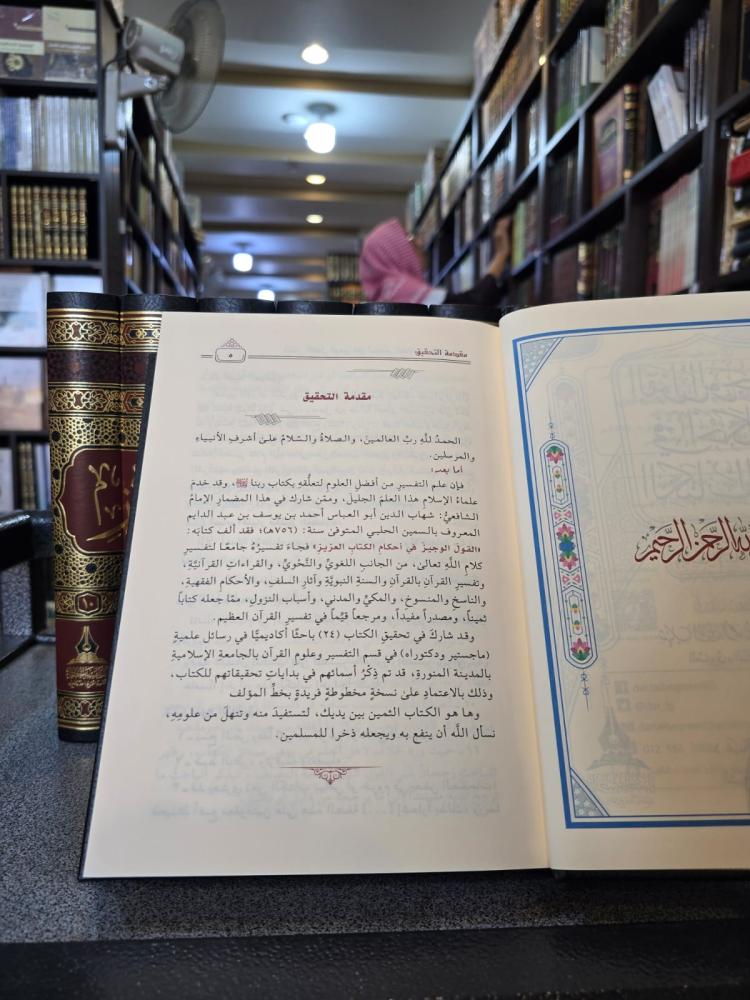 مقدمة التحقيق
٥
مقدمة التحقيق
الحمدُ للَّهِ ربِّ العالمينَ، والصلاةُ والسَّلامُ علىٰ أشرفِ الأنبياءِ
والمرسلين.
أما بعد:
فإن علم التفسيرِ من أفضلِ العلوم لتعلُّقهِ بكتاب ربنا ﷻ، وقد خدمَ
علماءُ الإسلام هذا العلمَ الجليلَ، وممّن شارك في هذا المضمارِ الإمامُ
الشافعيُّ: شهاب الدين أبو العباس أحمد بن يوسف بن عبد الدايم
المعروف بالسمين الحلبي المتوفىٰ سنة: (٧٥٦هـ)؛ فقد ألف كتابَه:
«القولُ الوجيزُ في أحكامِ الكتابِ العزيزِ» فجاءَ تفسيرُهُ جامعًا لتفسيرِ
كلام اللَّهِ تعالىٰ، من الجانبِ اللغويِّ والنَّحويِّ، والقراءاتِ القرآنيّةِ،
وتفسيرِ القرآنِ بالقرآنِ والسنةِ النبويّةِ وآثارِ السلفِ، والأحكامِ الفقهيةِ،
والناسخِ والمنسوخِ، والمكيِّ والمدني، وأسبابِ النزولِ، ممّا جعله كتاباً
ثميناً، ومصدراً مفيداً، ومرجعاً قيِّماً في تفسيرِ القرآن العظيم.
وقد شاركَ في تحقيقِ الكتابِ (٢٤) باحثًا أكاديميًّا في رسائل علميةٍ
(ماجستير ودكتوراه) في قسم التفسير وعلوم القرآن بالجامعةِ الإسلاميةِ
بالمدينة المنورةِ، قد تم ذِكْرُ أسمائهم في بداياتِ تحقيقاتهم للكتاب،
وذلك بالاعتمادِ علىٰ نسخةٍ مخطوطةٍ فريدةٍ بخطِّ المؤلف
وها هو الكتاب الثمين بين يديك، لتستفيدَ منه وتنهلَ من علومِهِ،
نسأل اللَّه أن ينفع به ويجعله ذخرا للمسلمين.
الله الرحمن الرحيم
١٠